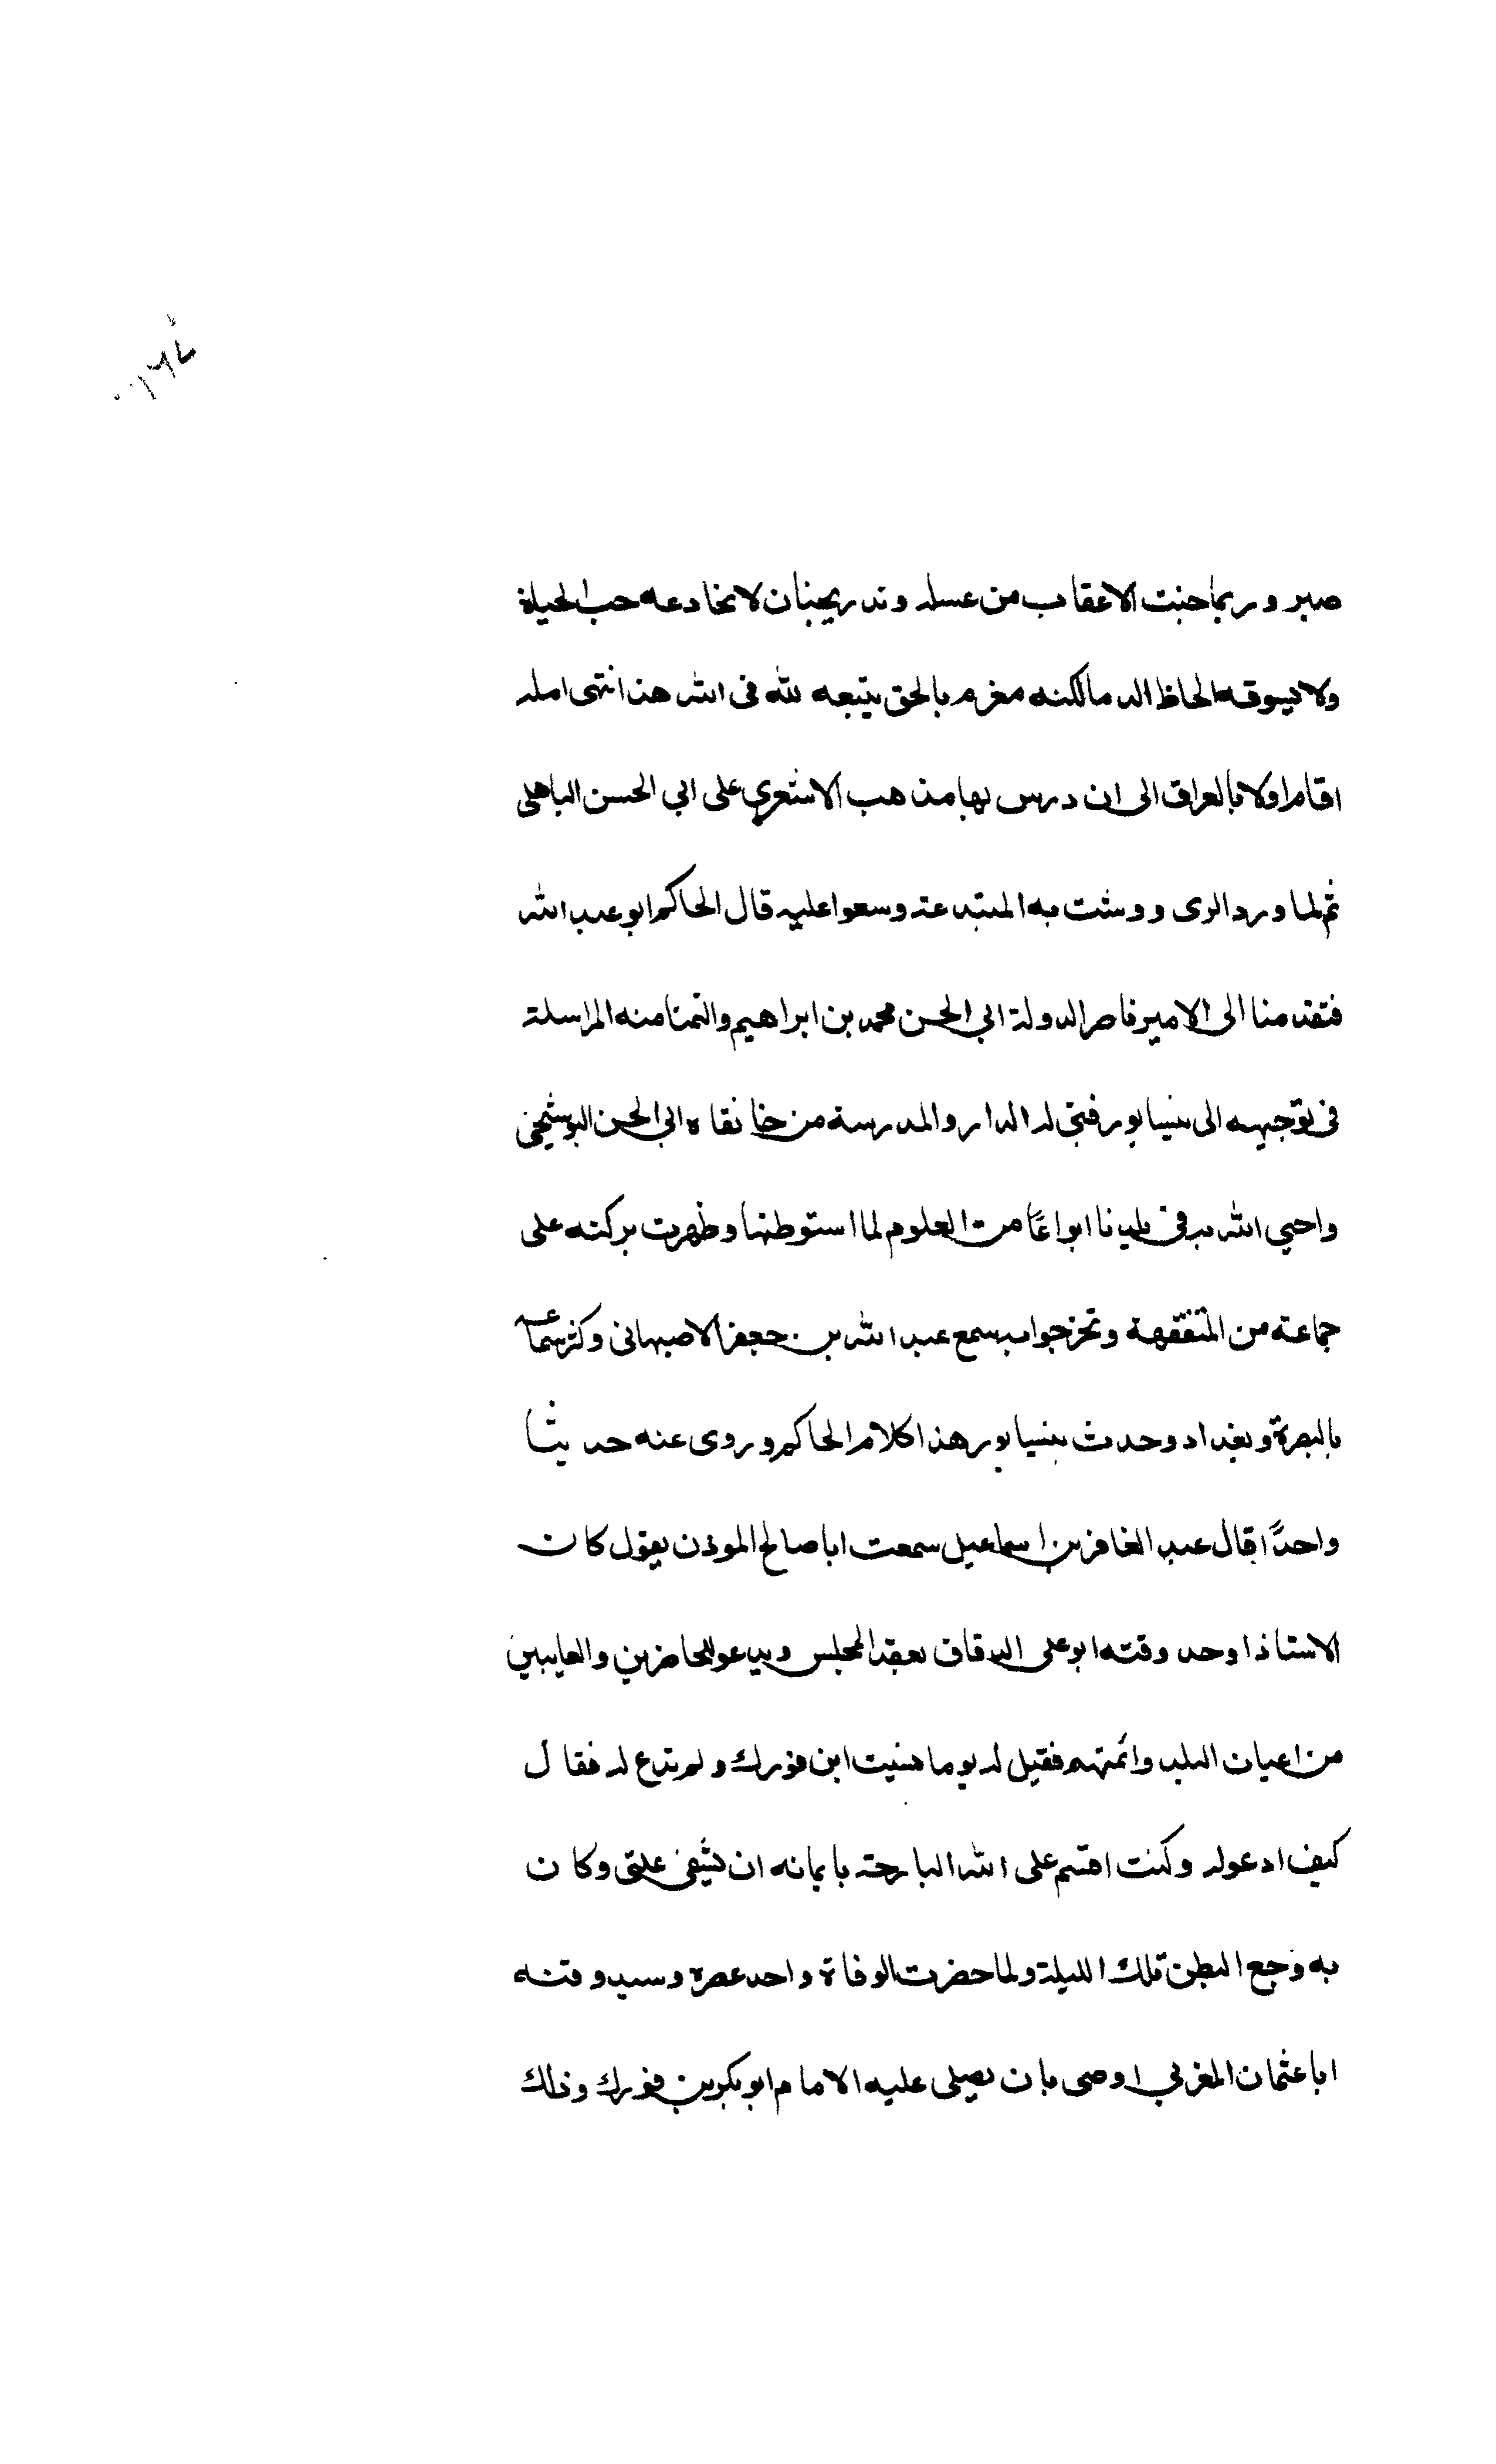 صبر وربما جنت الاعقاب من عسله وتدريجنبان لا تخادعه حب الحياة
ولا تسوقه الحاظ الدما لكنه مغرم بالحق يتبعه لله فى الله هذا انتهى امله
اقام اولا بالعراق الى ان درس بها مذهب الاشعري على ابي الحسن الباهلى
ثم لما ورد الرى ووشت به المبتدعة وسعوا عليه قال الحاكم ابو عبد الله
فتقدمنا الى الامير ناصر الدولة ابي الحسن محمد بن ابراهيم والتمنا منه المراسلة
فى توجيهه الى نيسابور فبنى له الدار والمدرسة من خانقاه ابي الحسن البوشنجى
واحيي الله به فى بلدنا انواعًا من العلوم لما استوطنها وظهرت بركته على
جماعة من المتفقهة وتخرجوا به سمع عبد الله بن جعفر الاصبهانى وكثر سماعه
بالبصرة وبغداد وحدث بنيسابور هذا كلام الحاكم وروى عنه حديثًا
واحدًا قال عبد الغافر بن اسماعيل سمعت ابا صالح الموذن يقول كان
الاستاذ اوحد وقته ابو على الدقاق يعقد المجلس ويدعو للحاضرين والغايبين
من اعيان البلد وائمتهم فقيل له يوما نسيت ابن فورك ولم تدع له فقال
كيف ادعو له وكنت اقسم على الله البارحة بايمانه ان يشفى علتى وكان
به وجع البطن تلك الليلة ولما حضرت الوفاة واحد عصره وسيد وقته
ابا عثمان المغربي اوصى بان يصلى عليه الامام ابو بكر بن فورك وذلك